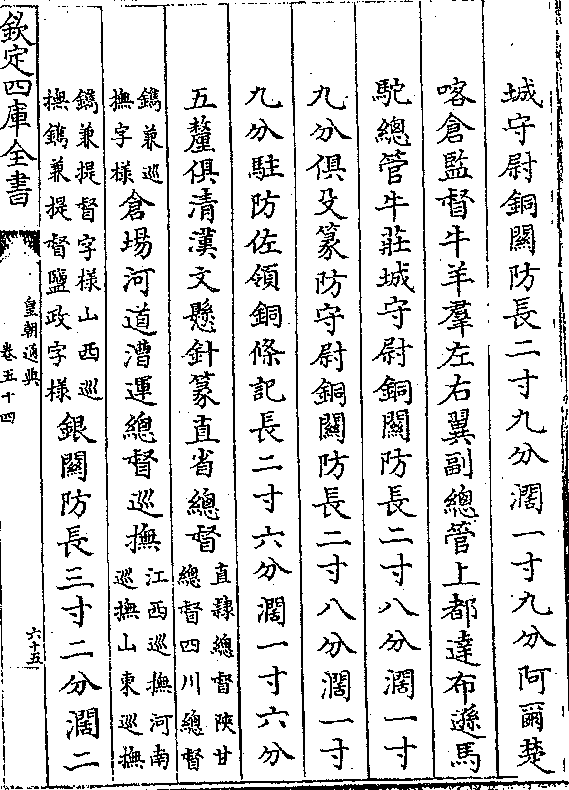 城守尉銅關防長二寸九分濶一寸九分阿爾楚
喀倉監督牛羊羣左右翼副總管上都達布遜馬
駝總管牛莊城守尉銅關防長二寸八分濶一寸
九分俱殳篆防守尉銅關防長二寸八分濶一寸
九分駐防佐領銅條記長二寸六分濶一寸六分
五釐俱清漢文懸針篆直省總督直隸總督陜甘總督四川總督
鐫兼巡撫字様倉場河道漕運總督巡撫江西巡撫河南巡撫山東巡撫
鐫兼提督字様山西巡撫鐫兼提督鹽政字様銀關防長三寸二分濶二
欽定四庫全書
皇朝通典
卷五十四
六十五